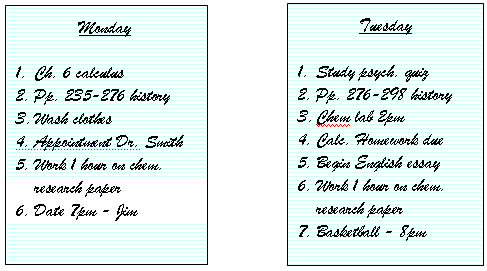 Monday
1. Ch. 6 calculus
2. Pp. 235-276 history
3. Wash clothes
4. Appointment Dr. Smith
5. Work 1 hour on chem.
research paper
6. Date 7pm - Jim
Tuesday
1. Study psych. quiz
2. Pp. 276-298 history
3. Chem lab 2pm
4. Calc. Homework due
5. Begin English essay
6. Work 1 hour on chem.
research paper
7. Basketball - 8pm